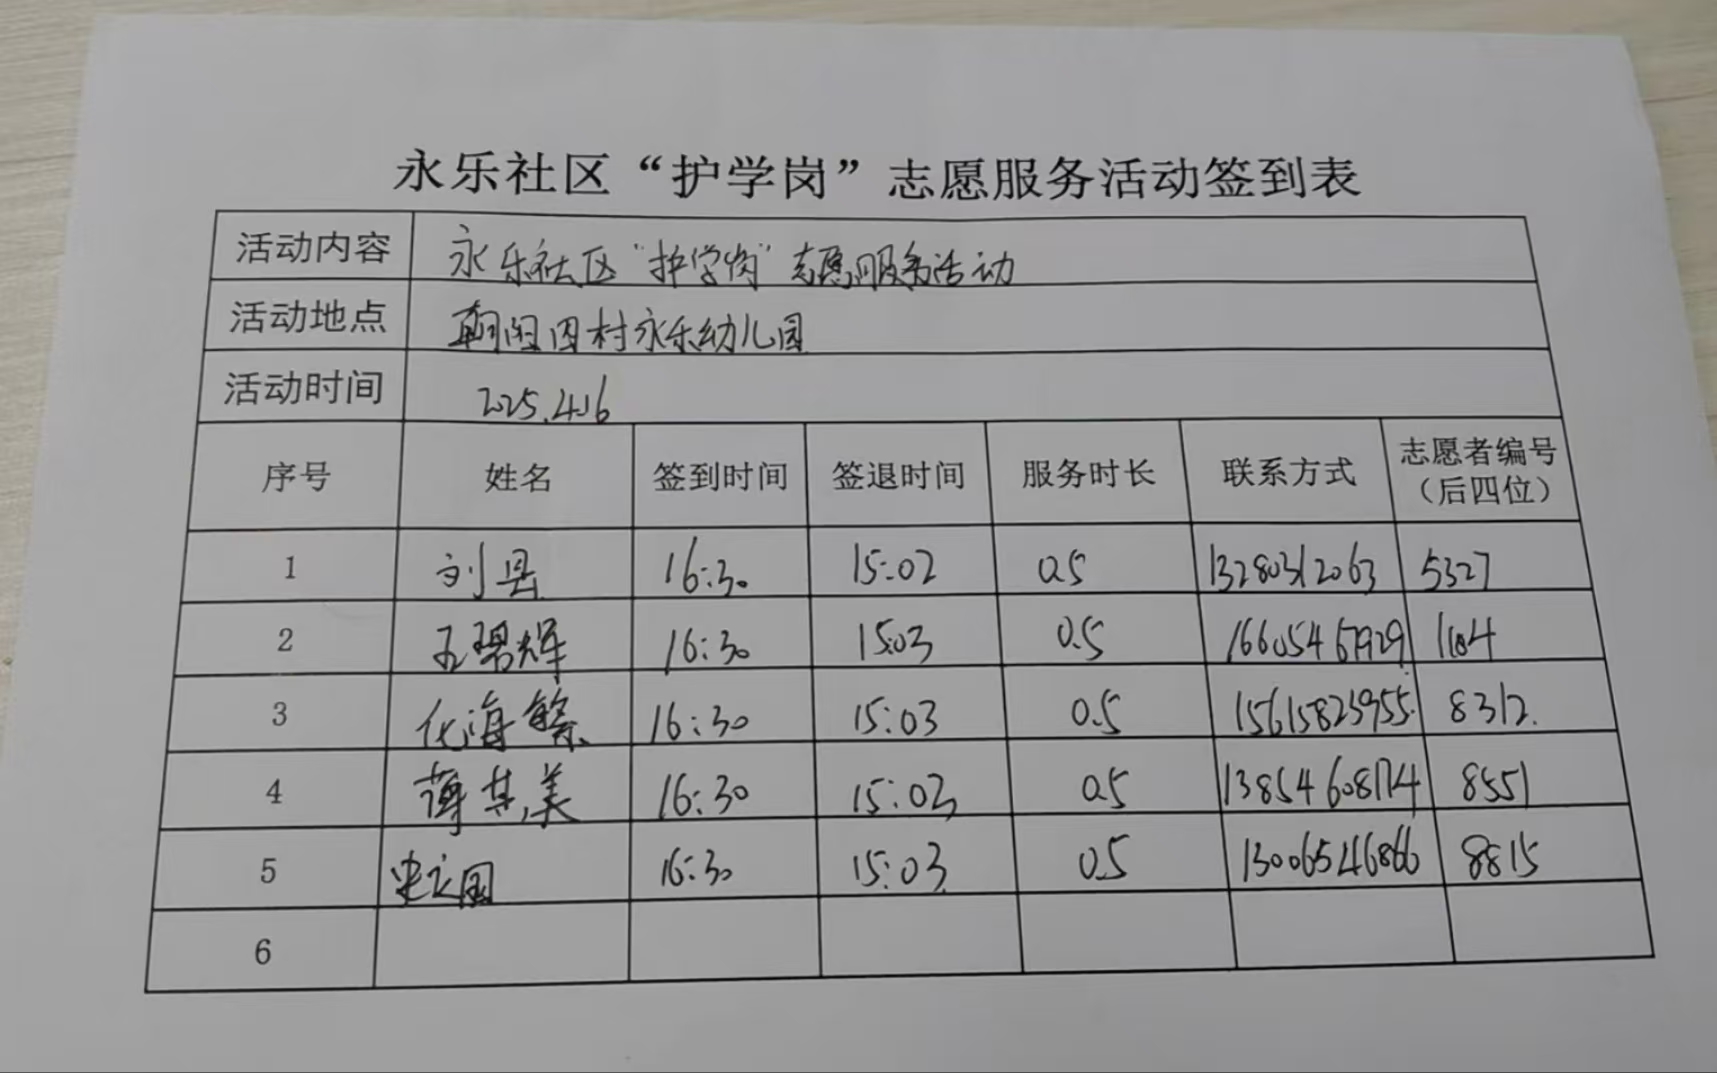 永乐社区“护学岗”志愿服务活动签到表
活动内容 永乐社区“护学岗”志愿服务活动
活动地点 朝阳四村永乐幼儿园
活动时间 2025.4.16
序号 姓名 签到时间 签退时间 服务时长 联系方式 志愿者编号
(后四位)
1 刘县 16:30 15:02 0.5 13280312063 5327
2 16:30 15:03 0.5 1184
3 16:30 15:03 0.5 15615823955 8312.
4 薄其美 16:30 15:03 0.5 13854608174 8551
5 史立国 16:30 15:03 0.5 13006546866 8815
6